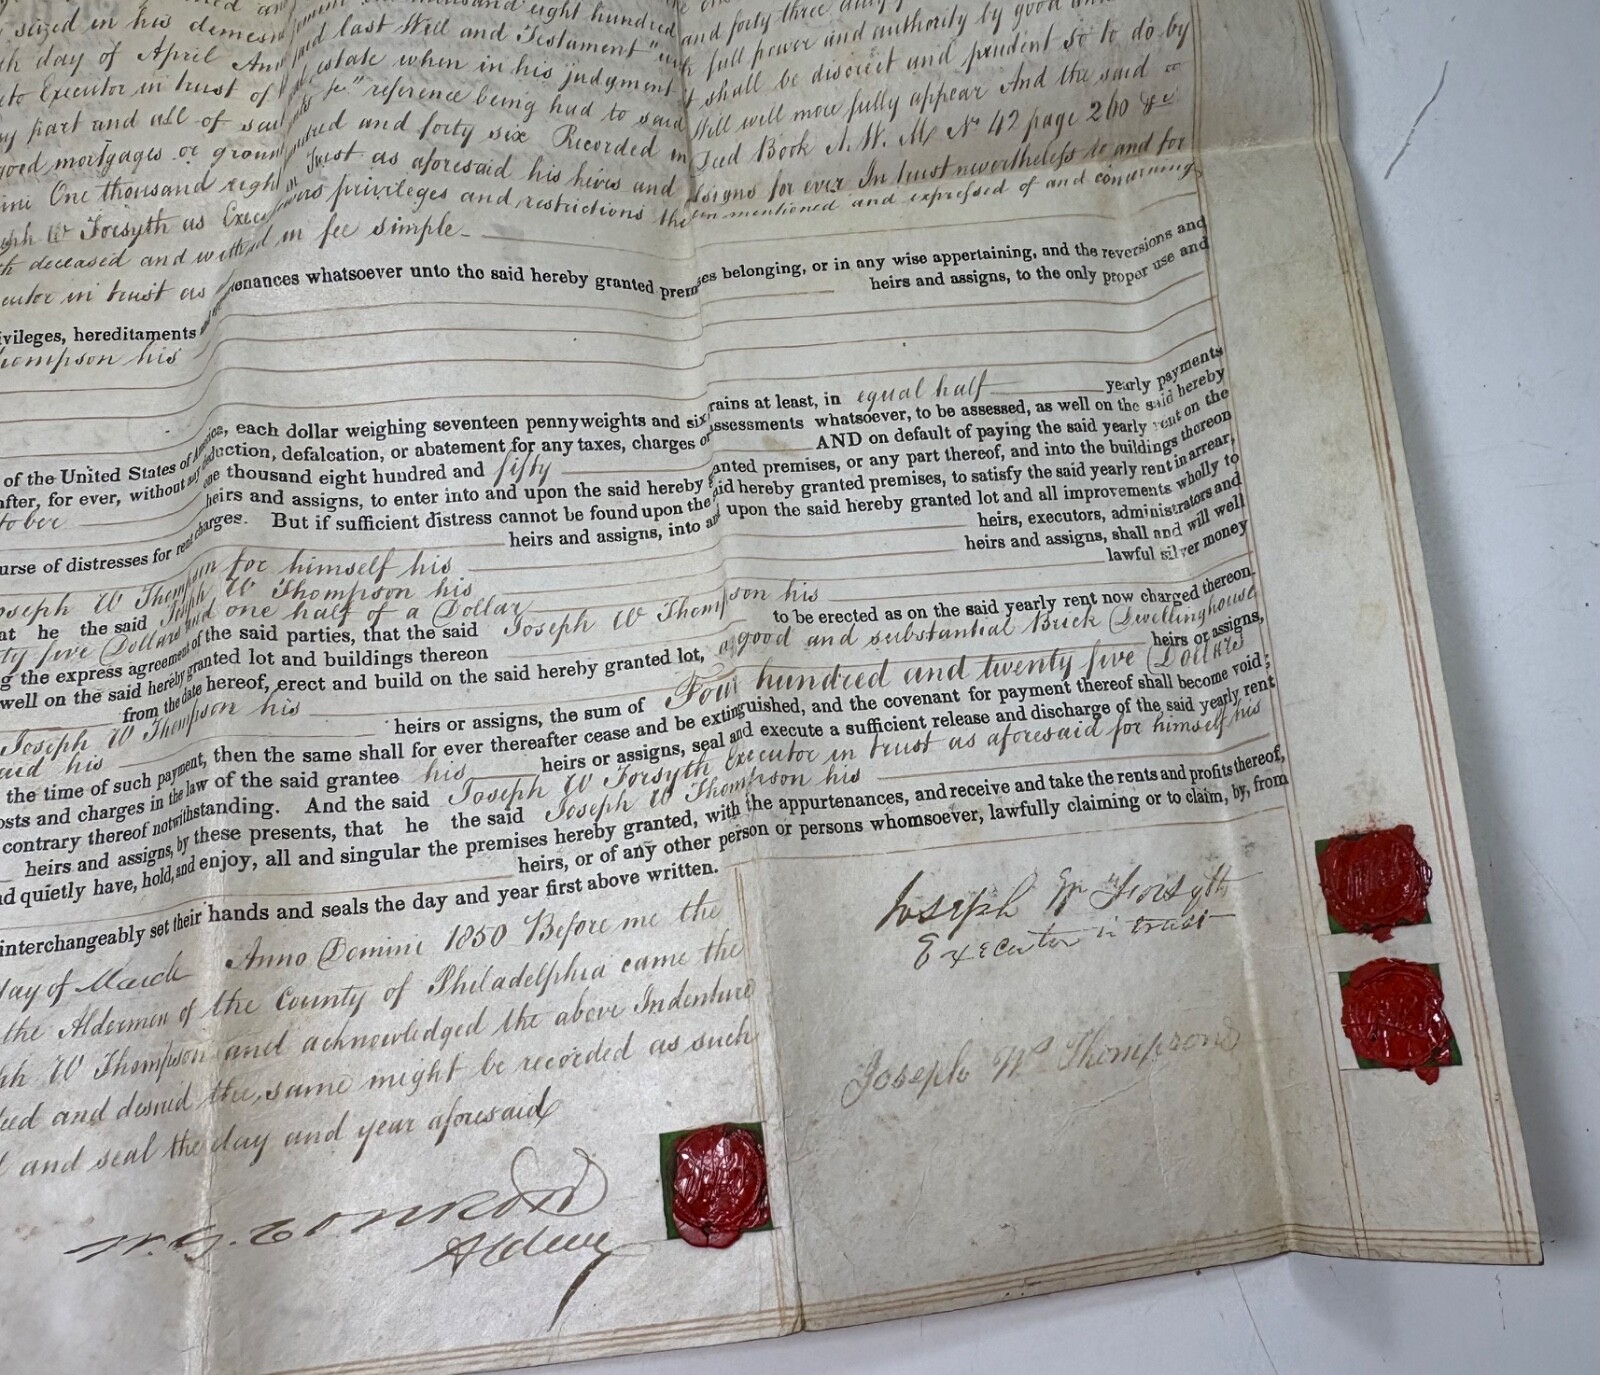 sized in his demesn
last Will and Testament
and forty three
full power and authority by good
day of April
estate when in his judgment
shall be discreet and prudent so to do by
Executor in trust of
reference being had to said
Will will more fully appear And the said
part and all of said
and forty six Recorded in
Deed Book A. W. M. No 42 page 260 &c
good mortgages or groun
in Trust as aforesaid his heirs and
assigns for ever In trust nevertheless to and for
One thousand eigh
privileges and restrictions the
mentioned and expressed of and concerning
W Forsyth as Exec
deceased and
in fee simple
tenances whatsoever unto the said hereby granted premises belonging, or in any wise appertaining, and the reversions and
in trust as
heirs and assigns, to the only proper use and
ivileges, hereditaments
Thompson his
each dollar weighing seventeen pennyweights and six grains at least, in equal half yearly payments
of the United States of America
duction, defalcation, or abatement for any taxes, charges or assessments whatsoever, to be assessed, as well on the said hereby
after, for ever, without any
one thousand eight hundred and fifty AND on default of paying the said yearly rent on the
heirs and assigns, to enter into and upon the said hereby granted premises, or any part thereof, and into the buildings thereon
urse of distresses for rent charges. But if sufficient distress cannot be found upon the said hereby granted premises, to satisfy the said yearly rent in arrear,
heirs and assigns, into and upon the said hereby granted lot and all improvements wholly to
heirs, executors, administrators and
Joseph W Thompson for himself his heirs and assigns, shall and will well
at he the said Joseph W Thompson his lawful silver money
ty five Dollars and one half of a Dollar
g the express agreement of the said parties, that the said Joseph W Thompson his
well on the said hereby granted lot and buildings thereon to be erected as on the said yearly rent now charged thereon.
from the date hereof, erect and build on the said hereby granted lot, a good and substantial Brick Dwelling house
Joseph W Thompson his heirs or assigns,
said his heirs or assigns, the sum of Four hundred and twenty five Dollars
the time of such payment, then the same shall for ever thereafter cease and be extinguished, and the covenant for payment thereof shall become void;
osts and charges in the law of the said grantee his heirs or assigns, seal and execute a sufficient release and discharge of the said yearly rent
contrary thereof notwithstanding. And the said Joseph W Forsyth Executor in trust as aforesaid for himself his
heirs and assigns, by these presents, that he the said Joseph W Thompson his
nd quietly have, hold, and enjoy, all and singular the premises hereby granted, with the appurtenances, and receive and take the rents and profits thereof,
heirs, or of any other person or persons whomsoever, lawfully claiming or to claim, by, from
interchangeably set their hands and seals the day and year first above written.
day of March Anno Domini 1850 Before me the
the Aldermen of the County of Philadelphia came the
W Thompson and acknowledged the above Indenture
deed and desired the same might be recorded as such
and seal the day and year aforesaid
Alderm
Joseph W Forsyth
Executor in trust
Joseph W Thompson